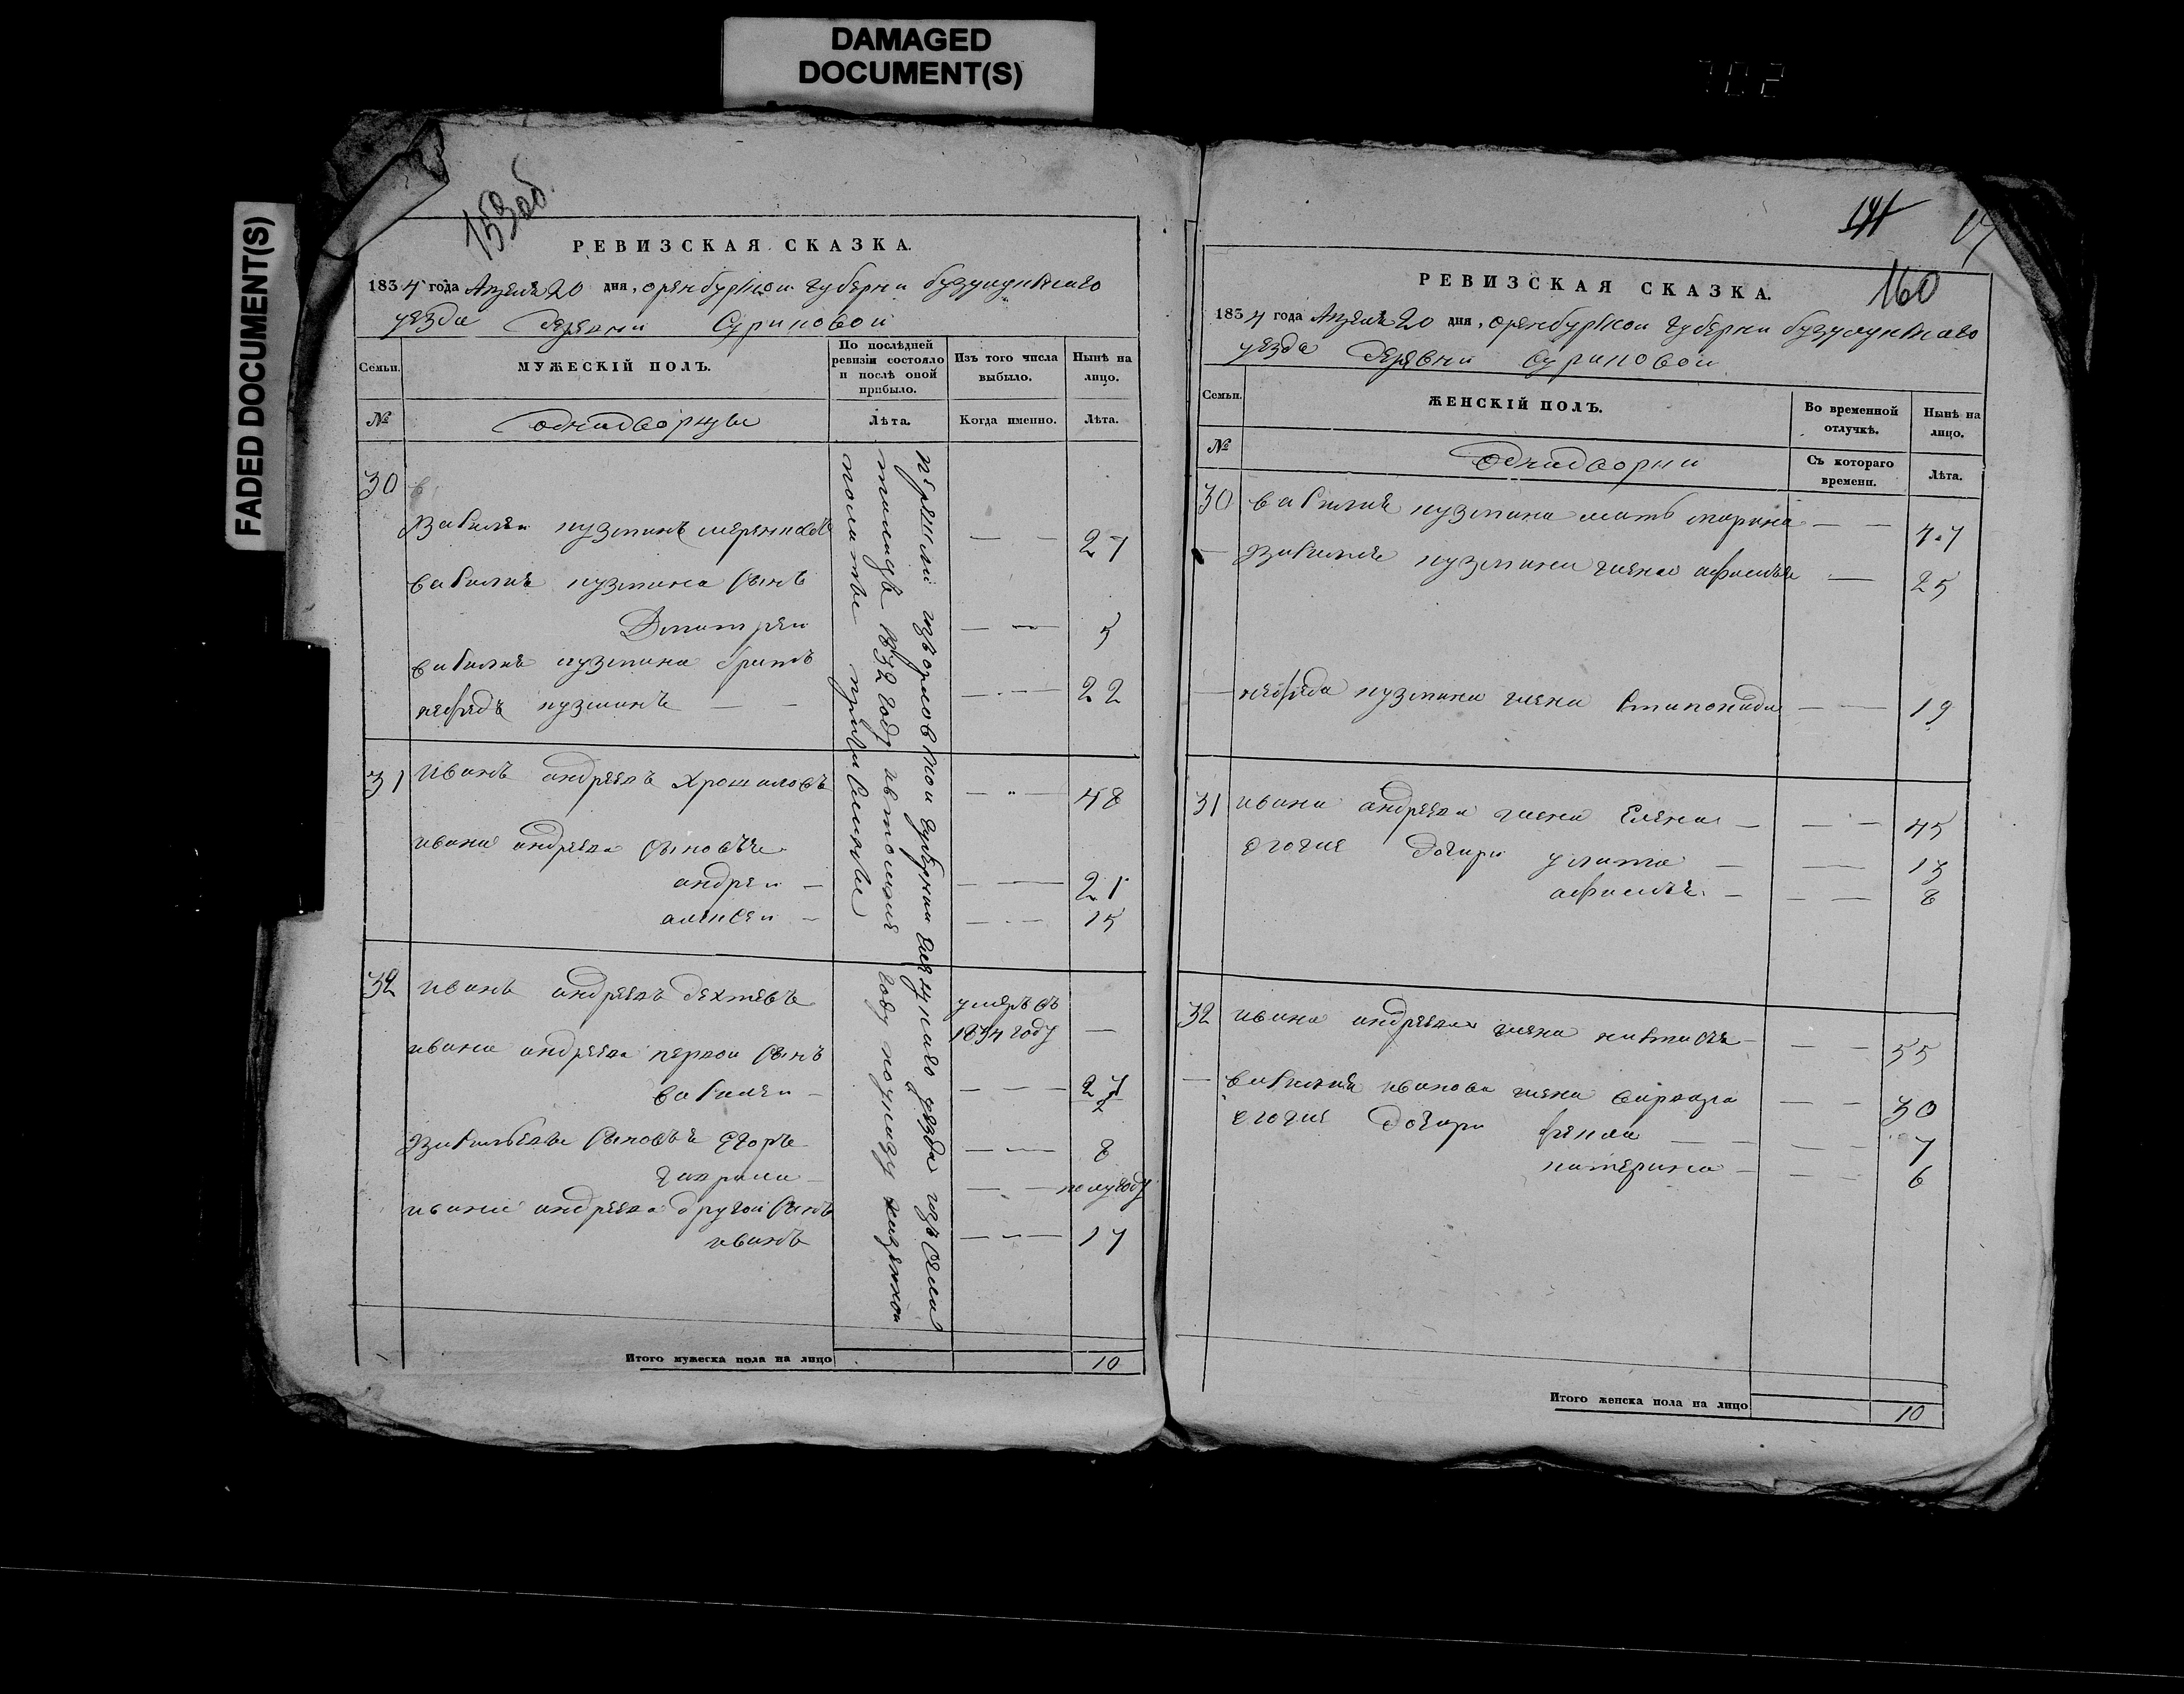 DAMAGED
DOCUMENT(S)
FADED DOCUMENT(S)
702
153об.
РЕВИЗСКАЯ СКАЗКА.
1834 года Апреля 20 дня, оренбургской губерни бузулукскаго
уезда деревни Суриковой
Семьи.
МУЖЕСКІЙ ПОЛЪ.
По послѣдней
ревизіи состояло
и послѣ оной
прибыло.
Изъ того числа
выбыло.
Нынѣ на
лицо.
№
однадворцы
Лѣта.
Когда именно.
Лѣта.
30
Василеи кузминъ 27
василия кузмина сынъ
Дмитреи 5
василия кузмина братъ
нефедъ кузминъ 22
31 иванъ андреевъ 48
ивана андреева сыновья
андреи 21
алексеи 15
32 иванъ андреевъ дехтевъ умеръ въ
1834 году
ивана андреева первои сынъ
василеи 27
Васильевы сыновья егоръ 8
гаврила полугоду
ивана андреева другои сынъ
иванъ 17
перешли изъ орловской губернии елецкаго уезда изъ села
1832 году
Итого мужеска пола на лицо 10
160
РЕВИЗСКАЯ СКАЗКА.
1834 года Апреля 20 дня, оренбургской губерни бузулукскаго
уезда деревни Суриковой
Семьи.
ЖЕНСКІЙ ПОЛЪ.
Во временной
отлучкѣ.
Нынѣ на
лицо.
№
Однадворки
Съ котораго
времени.
Лѣта.
30 василия кузмина мать марина 47
Василия кузмина жена афимья 25
нефеда кузмина жена 19
31 ивана андреева жена Елена 45
его же дочери улита 13
афимья 8
32 ивана андреева жена настасья 55
василия иванова жена варвара 30
его же дочери фекла 7
катерина 6
Итого женска пола на лицо 10